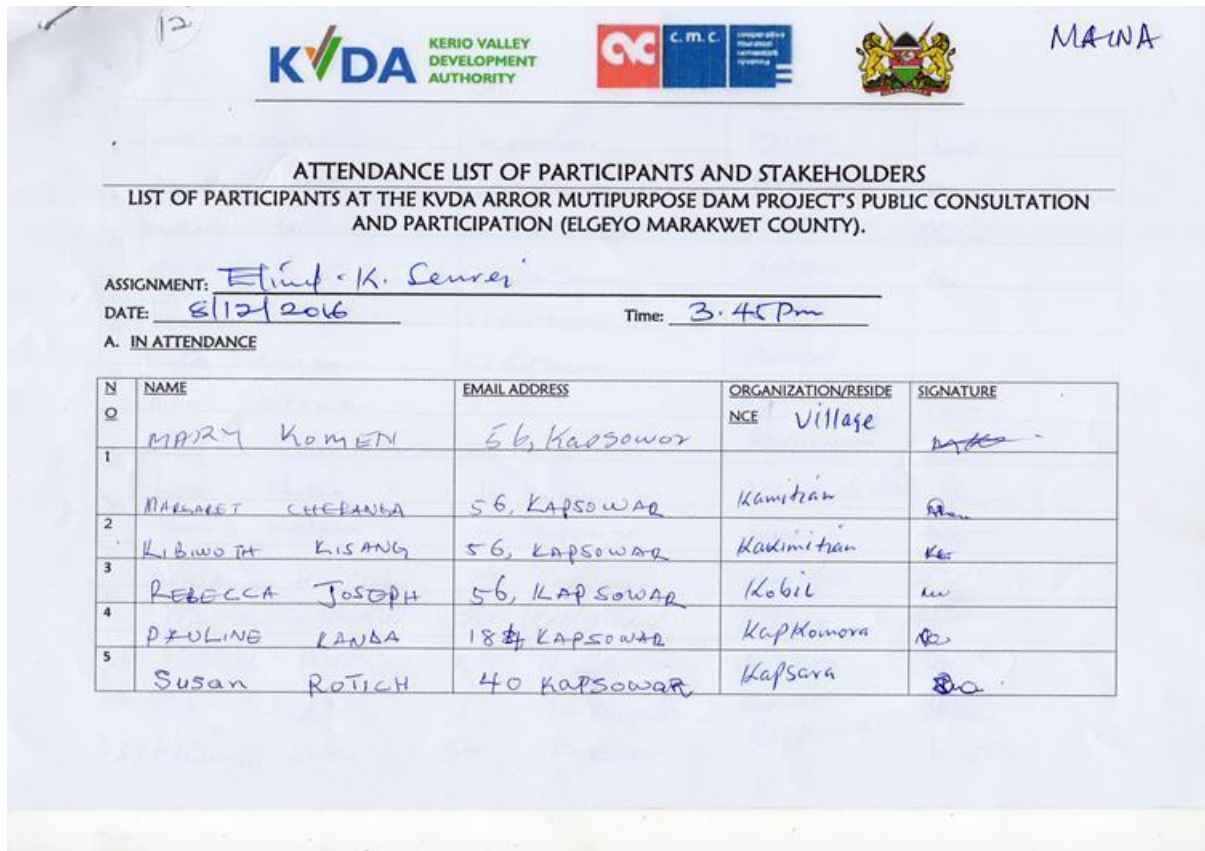 12
MAINA
KVDA KERIO VALLEY
DEVELOPMENT
AUTHORITY
c. m. c.
cooperativa
muratori
cementisti
ravenna
ATTENDANCE LIST OF PARTICIPANTS AND STAKEHOLDERS
LIST OF PARTICIPANTS AT THE KVDA ARROR MUTIPURPOSE DAM PROJECT'S PUBLIC CONSULTATION
AND PARTICIPATION (ELGEYO MARAKWET COUNTY).
ASSIGNMENT: K.
DATE: 8/12/2016 Time: 3.45 Pm
A. IN ATTENDANCE
NO NAME EMAIL ADDRESS ORGANIZATION/RESIDENCE Village SIGNATURE
MARY KOMEN 56, Kapsowor
1 MARGARET CHEPANGA 56, KAPSOWAR Kamitian
2 KIBIWOTH KISANG 56, KAPSOWAR Kakimitian
3 REBECCA JOSEPH 56, KAPSOWAR Kobil
4 PAULINE KANDA KAPSOWAR KapKomora
5 Susan ROTICH 40 KAPSOWAR Kapsara